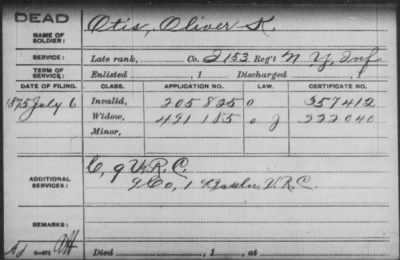 DEAD
NAME OF SOLDIER: Otis, Oliver K.
SERVICE: Late rank, Co. I 153 Reg't N.Y. Inf
TERM OF SERVICE: Enlisted , 1 Discharged , 1
DATE OF FILING. CLASS. APPLICATION NO. LAW. CERTIFICATE NO.
1875 July 6 Invalid, 205825 0 357412
Widow, 491185 0 222040
Minor,
ADDITIONAL SERVICES: C, 9 V.R.C.
9 Co, 1 V.R.C.
REMARKS:
Died , 1 , at